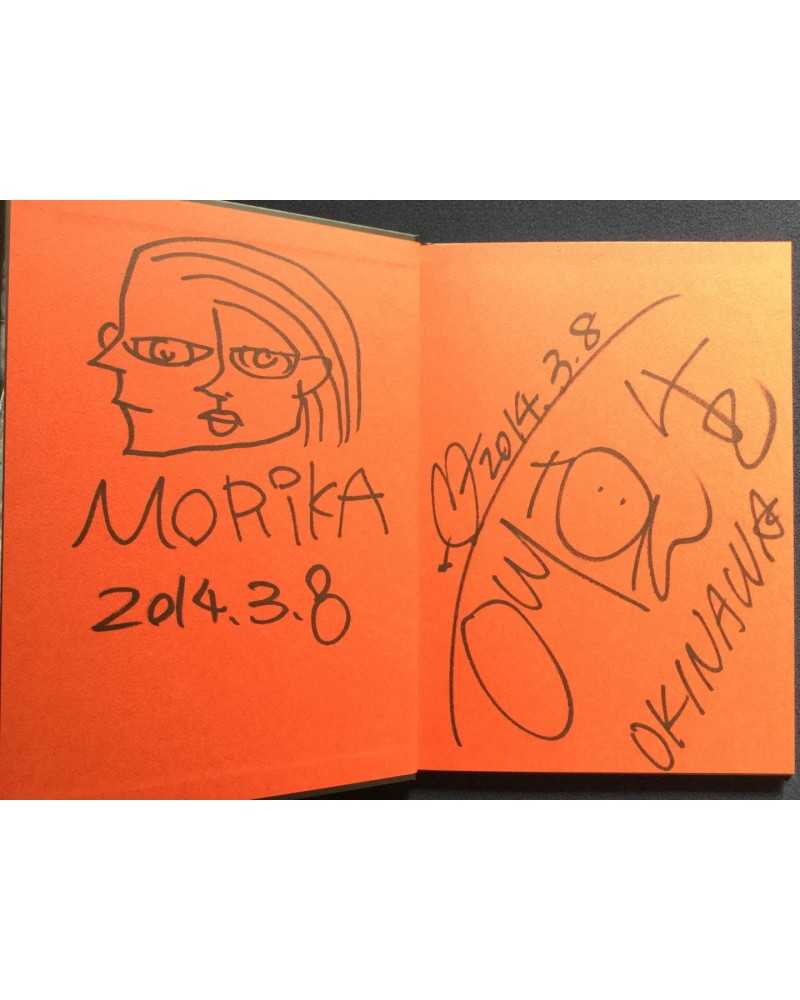 MORiKA
2014.3.8
2014.3.8
OKINAWA